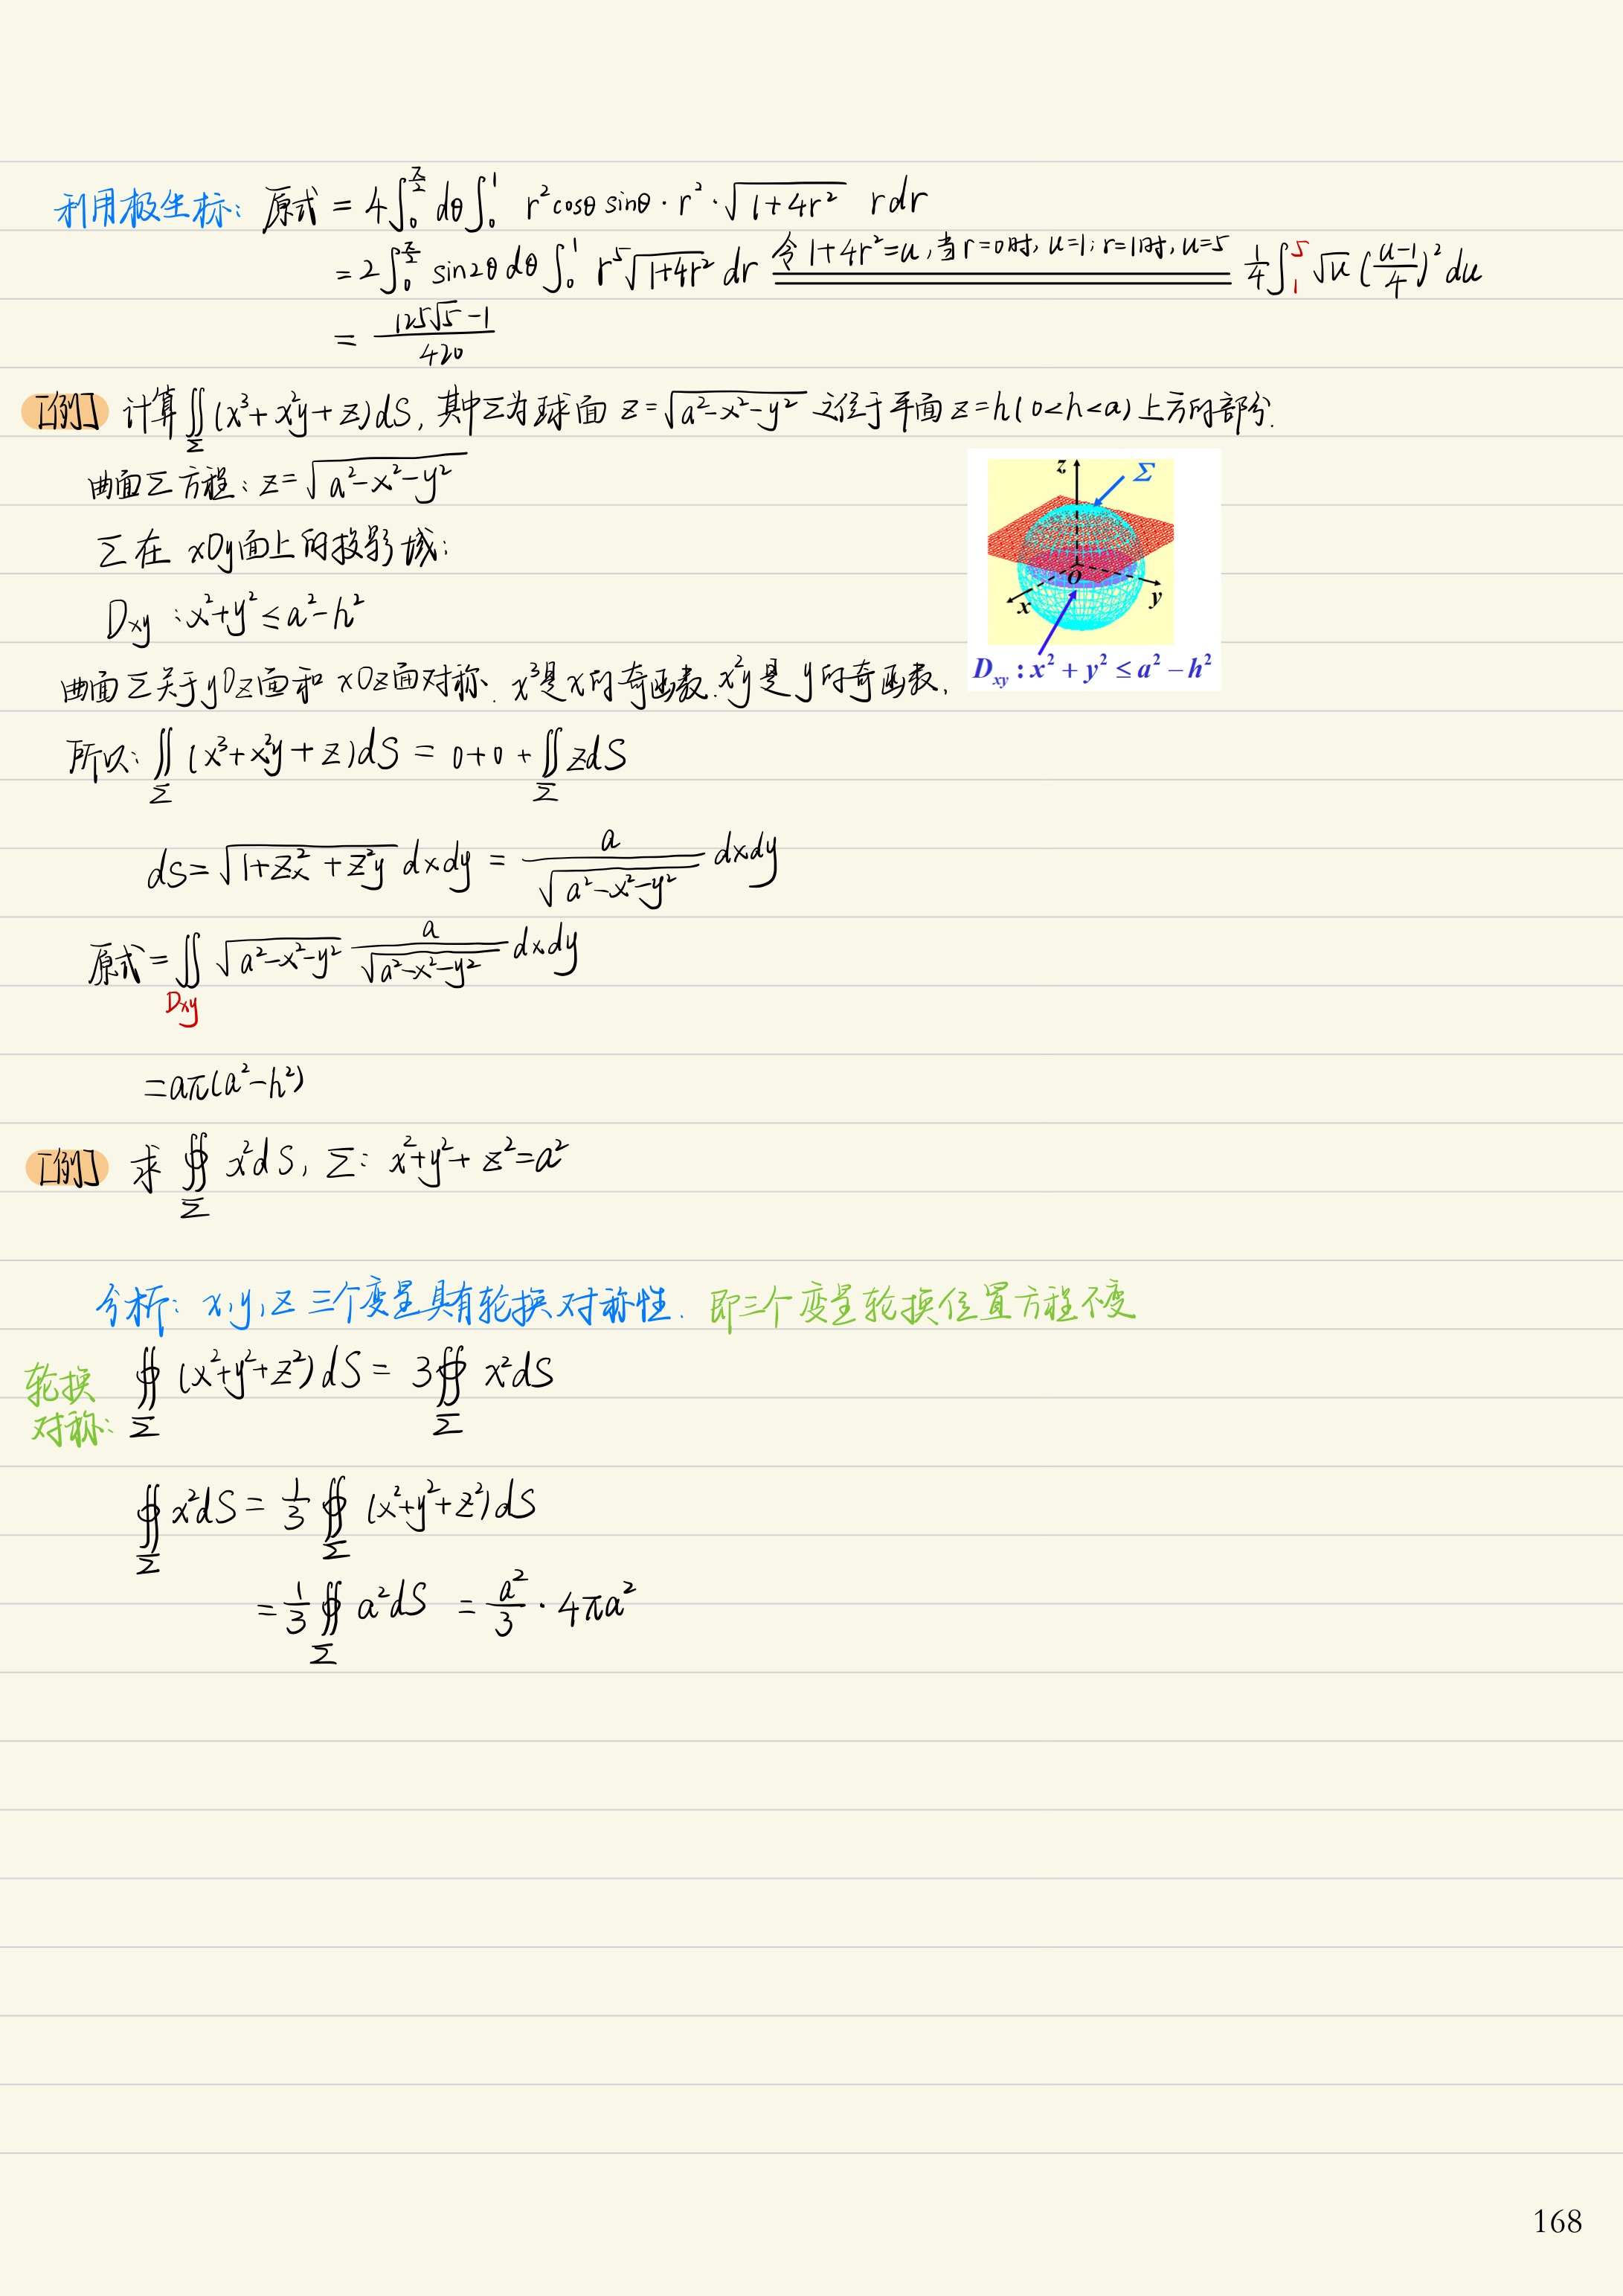 利用极坐标: 原式 = 4∫₀^{π/2} dθ ∫₀¹ r²cosθ sinθ · r² · √(1+4r²) r dr
= 2∫₀^{π/2} sin2θ dθ ∫₀¹ r⁵√(1+4r²) dr 令 1+4r²=u, 当r=0时, u=1; r=1时, u=5 1/4 ∫₁⁵ √u ((u-1)/4)² du
= (125√5 - 1)/420
[例] 计算 ∬_Σ (x³+x²y+z)dS, 其中Σ为球面 z=√(a²-x²-y²) 之位于平面 z=h(0<h<a)上方的部分.
曲面Σ方程: z=√(a²-x²-y²)
Σ在 xOy面上的投影域:
D_xy : x²+y² ≤ a²-h²
z
Σ
O
x
y
D_xy : x² + y² ≤ a² − h²
曲面Σ关于yOz面和 xOz面对称. x³是x的奇函数. x²y是y的奇函数,
所以: ∬_Σ (x³+x²y+z)dS = 0+0+∬_Σ zdS
dS=√(1+z_x²+z²y) dxdy = a/√(a²-x²-y²) dxdy
原式=∬_{Dxy} √(a²-x²-y²) a/√(a²-x²-y²) dxdy
=aπ(a²-h²)
[例] 求 ∯_Σ x²dS, Σ: x²+y²+z²=a²
分析: x,y,z 三个变量具有轮换对称性. 即三个变量轮换位置方程不变
轮换对称: ∯_Σ (x²+y²+z²)dS = 3∯_Σ x²dS
∯_Σ x²dS = 1/3 ∯_Σ (x²+y²+z²)dS
= 1/3 ∯_Σ a²dS = a²/3 · 4πa²
168